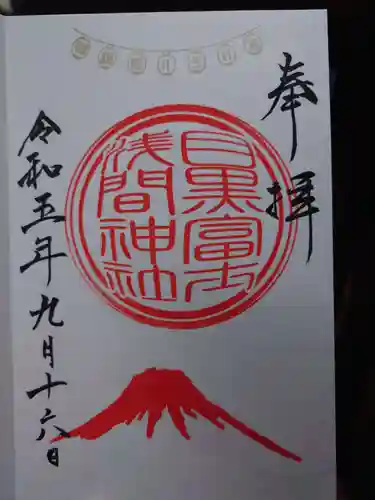 奉拝
目黒富士
浅間神社
令和五年九月十六日